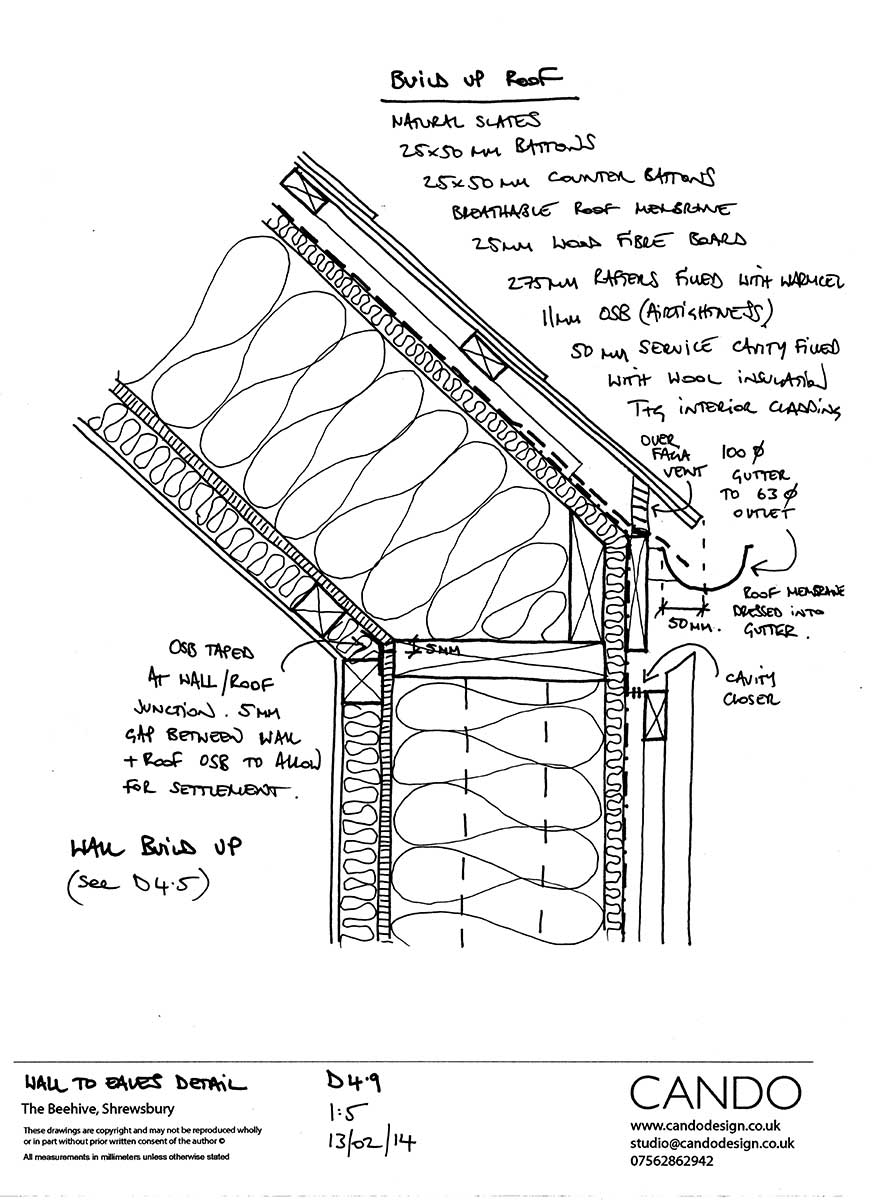 BUILD UP ROOF
NATURAL SLATES
25x50 MM BATTONS
25x50 MM COUNTER BATTONS
BREATHABLE ROOF MEMBRANE
25MM WOOD FIBRE BOARD
275MM RAFTERS FILLED WITH WARMCEL
11MM OSB (AIRTIGHTNESS)
50 MM SERVICE CAVITY FILLED
WITH WOOL INSULATION
T+G INTERIOR CLADDING
OVER
FACIA
VENT
100 Ø
GUTTER
TO 63 Ø
OUTLET
ROOF MEMBRANE
DRESSED INTO
GUTTER.
50MM.
OSB TAPED
AT WALL/ROOF
JUNCTION. 5MM
GAP BETWEEN WALL
+ ROOF OSB TO ALLOW
FOR SETTLEMENT.
5MM
CAVITY
CLOSER
WALL BUILD UP
(SEE D4.5)
WALL TO EAVES DETAIL
The Beehive, Shrewsbury
These drawings are copyright and may not be reproduced wholly
or in part without prior written consent of the author ©
All measurements in millimeters unless otherwise stated
D4.9
1:5
13/02/14
CANDO
www.candodesign.co.uk
studio@candodesign.co.uk
07562862942